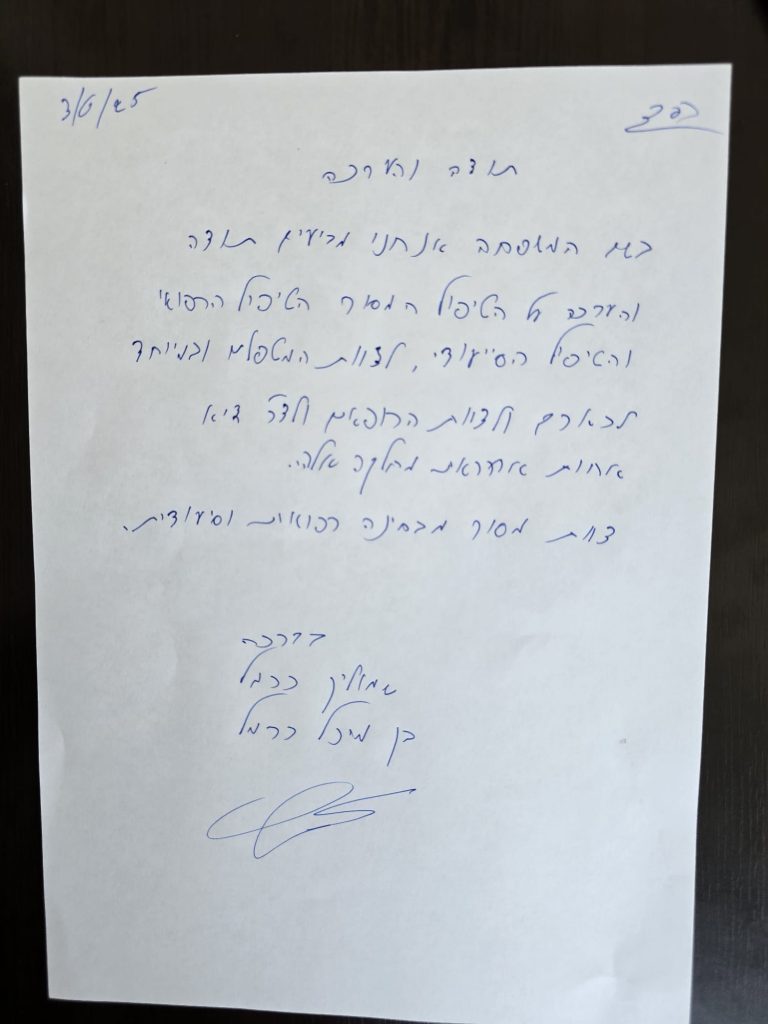 3/6/25
תודה והערכה
בשם המשפחה אנחנו מביעים תודה
והערכה על הטיפול המסור הטיפול הרפואי
והטיפול הסיעודי, לצוות המטפלים ובמיוחד
לצוות הרופאים ולד"ר
אחות אחראית מחלקה אלה.
צוות מסור מבחינה רפואית וסיעודית.
בברכה
שמוליק כרמל
בן מיכל כרמל